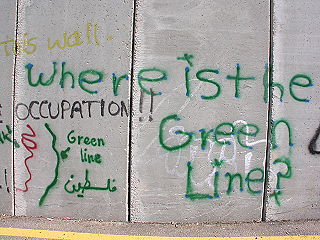 this wall.
Where is the
OCCUPATION!!
Green
Line?
Green
line
فلسطين